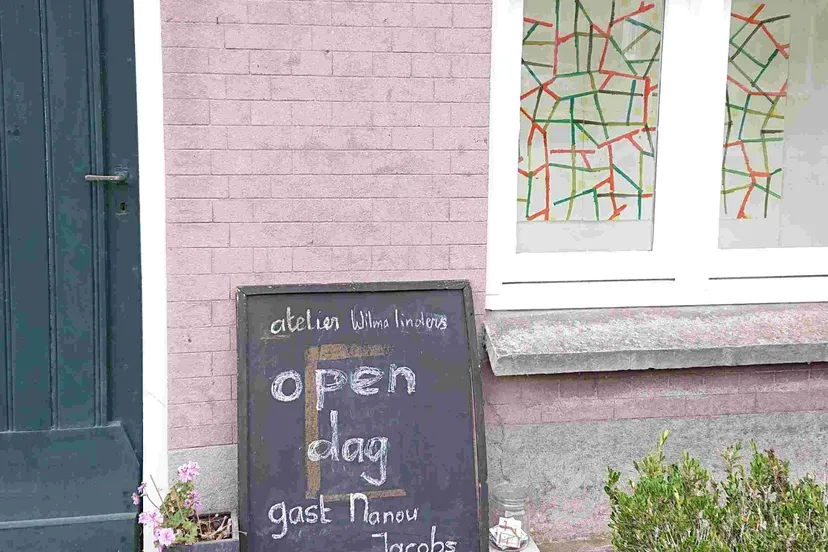 atelier Wilma linders
open
dag
gast Nanou
Jacobs